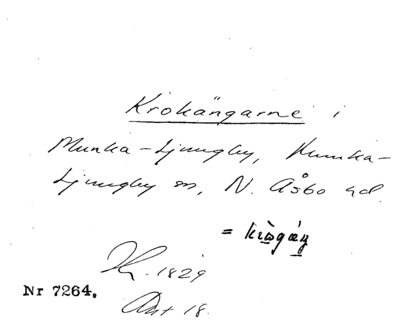 Krokängarne i
Munka-Ljungby, Munka-
Ljungby sn, N. Åsbo hd.
=
1829
Nr 7264.
18.